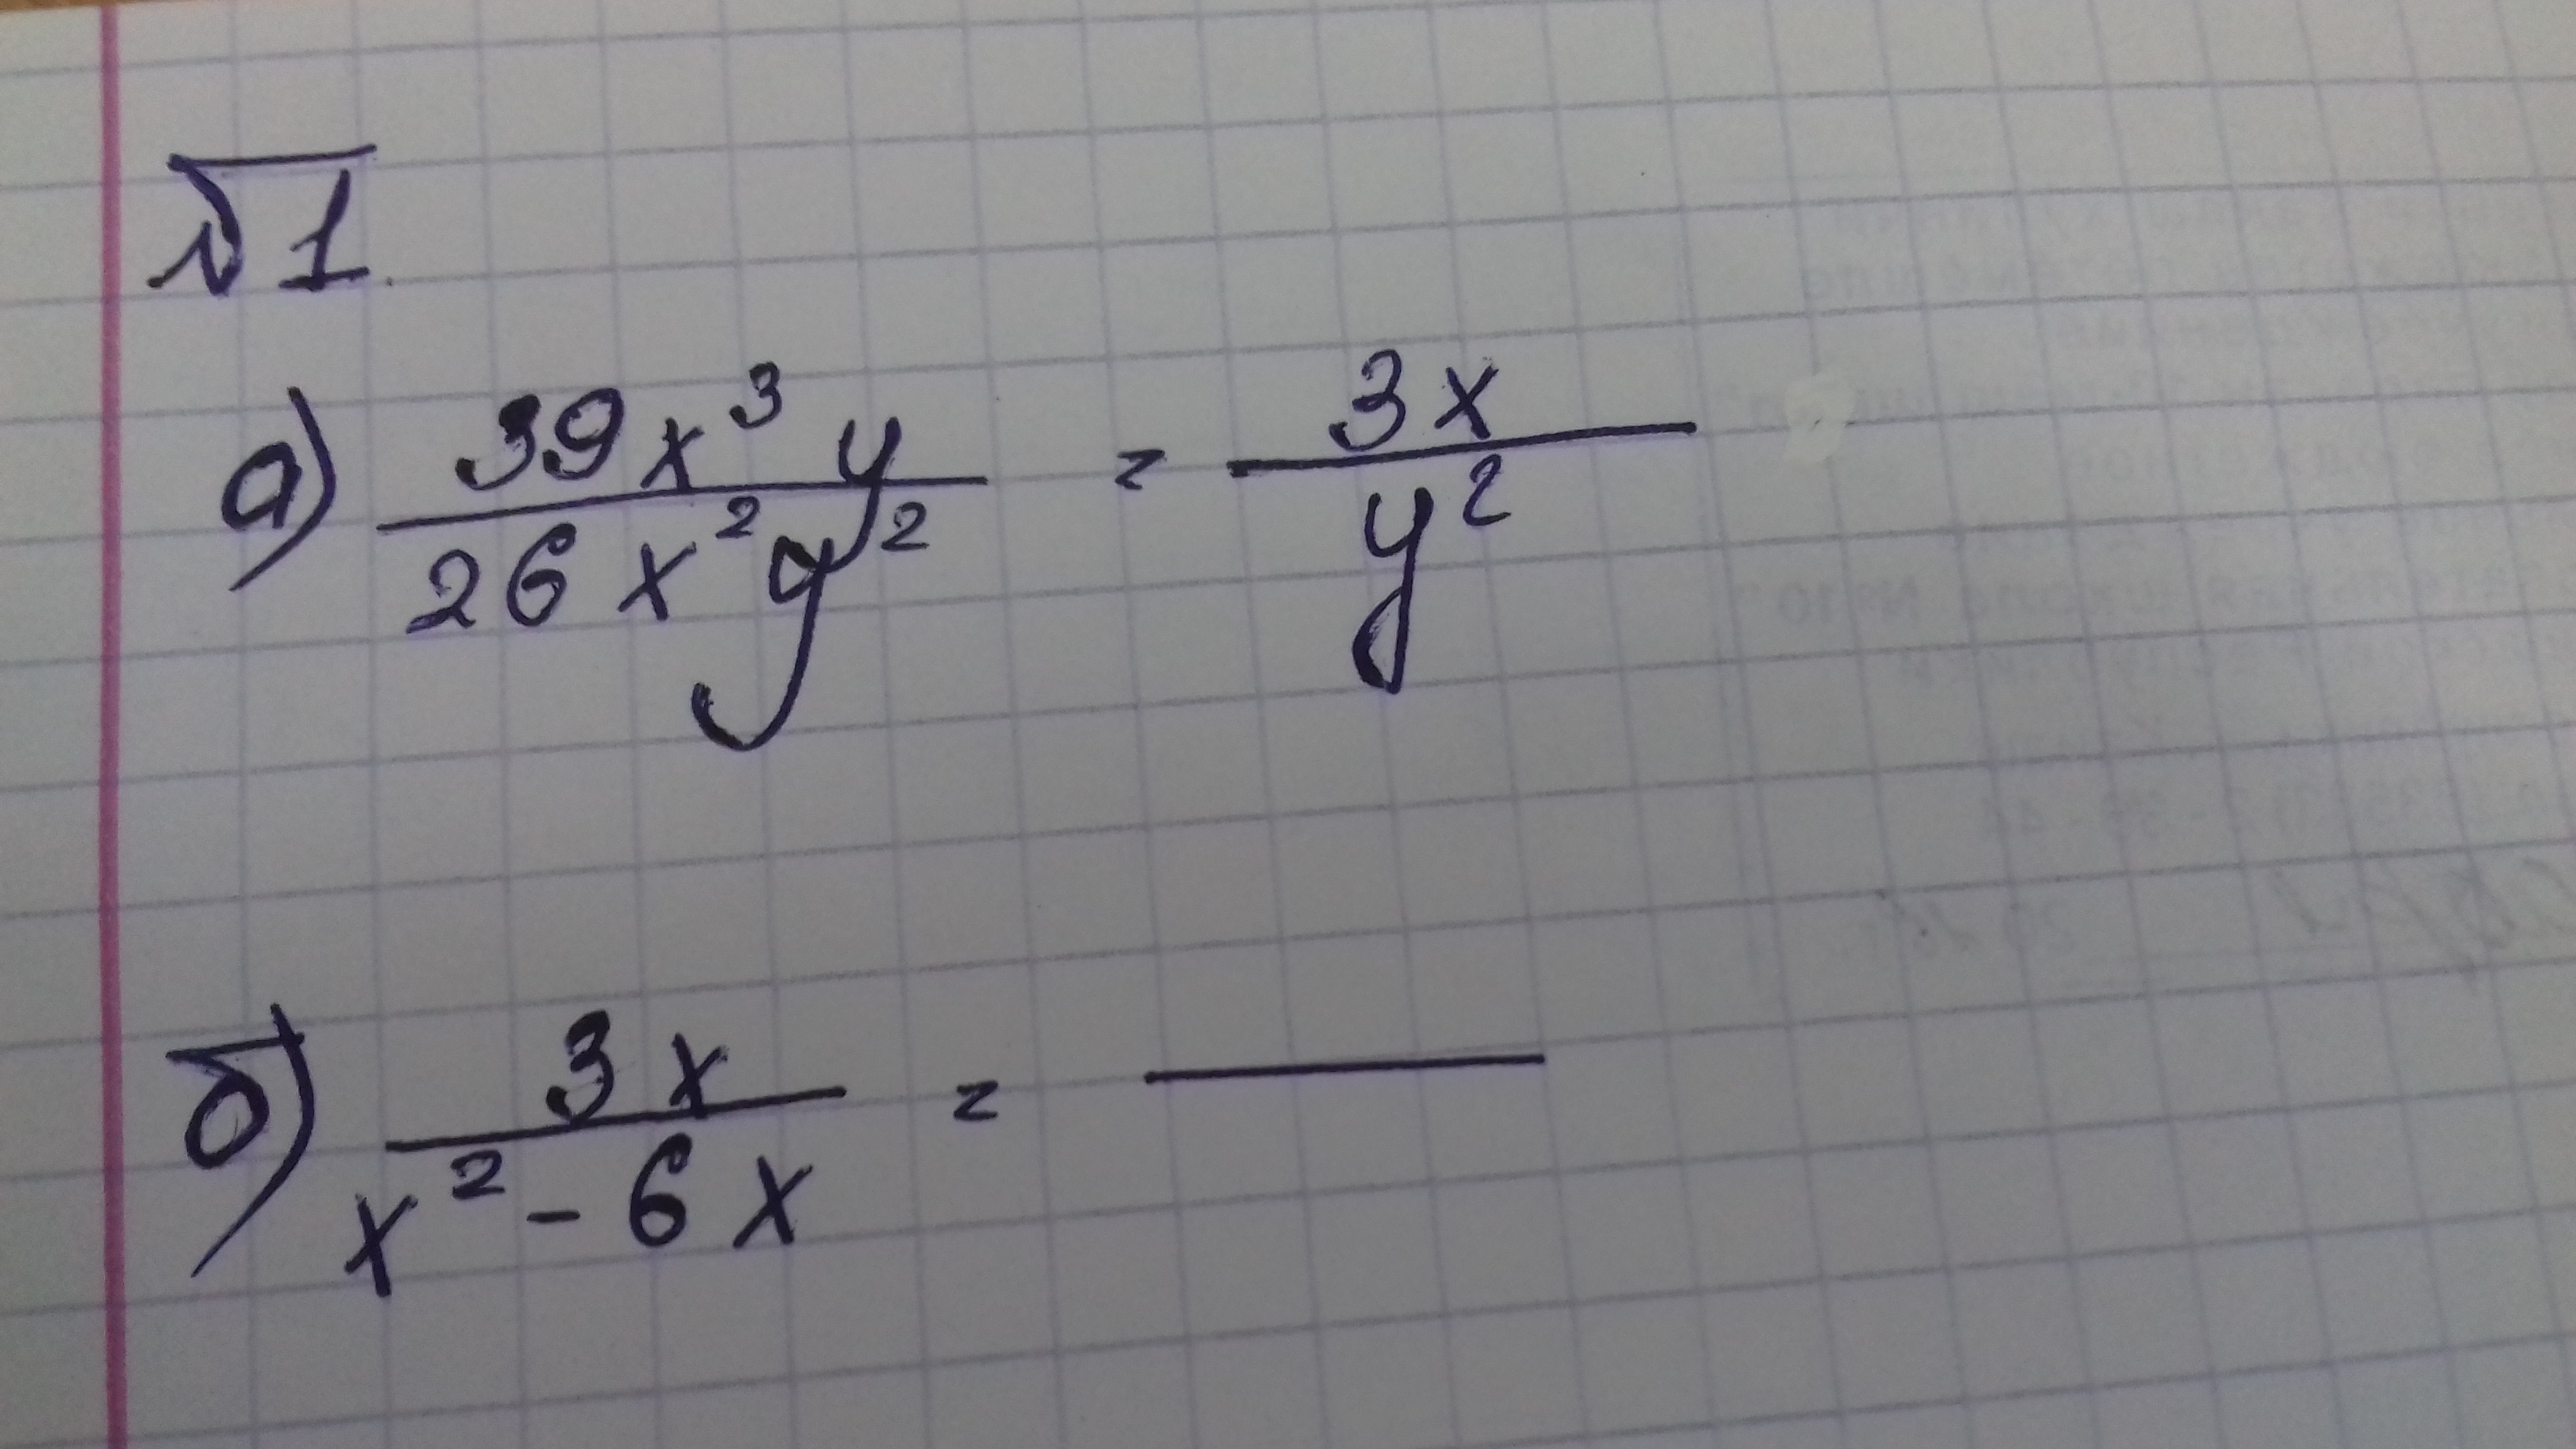 №1.
а) 39x³y / 26x²y² = 3x / y²
б) 3x / x² - 6x =